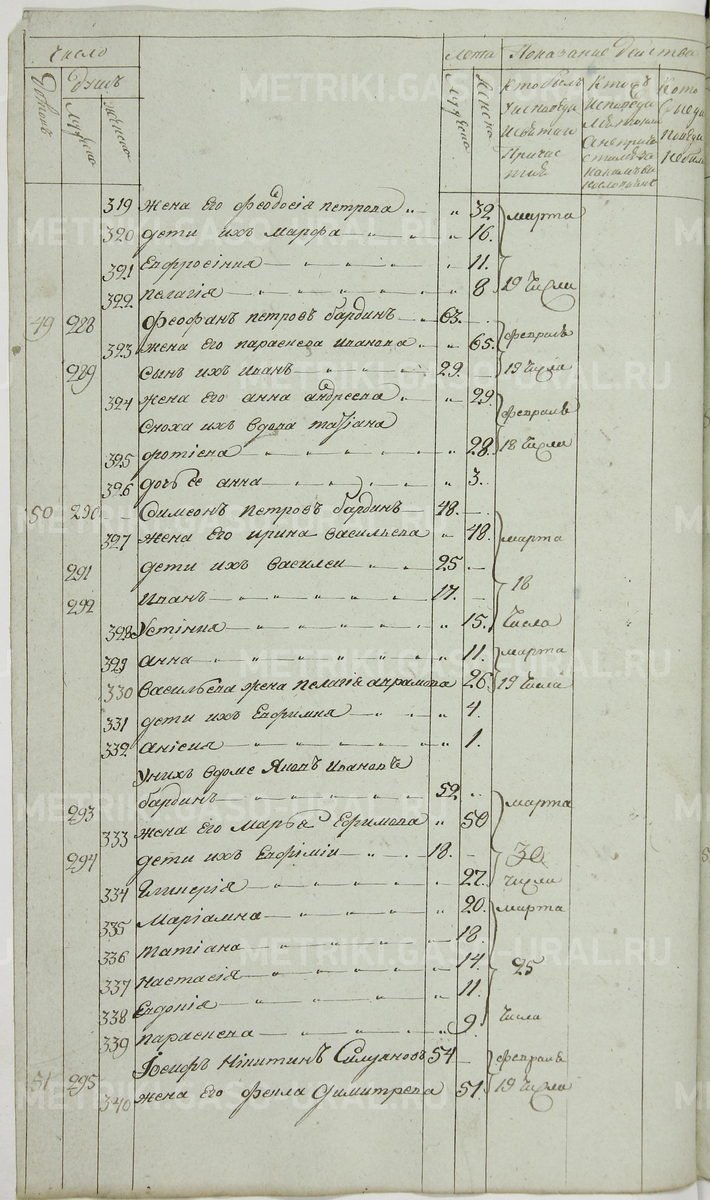 число лета Показание действа
Домовъ душъ мужеска женска мужеска женска Кто былъ у исповеди и святаго причастия
319 жена его феодосія петрова 32 марта
320 дети ихъ марфа 16.
321 Евфросиния 11.
322 пелагія 8 19 числа
49 288 Феофанъ петровъ бардинъ 63. февраля
323 жена его параскева иванова 65.
289 сынъ ихъ иванъ 29. 19 числа
324 жена его анна андреева 29. февраля
сноха ихъ вдова татіана
325 фотіева 28. 18 числа
326 дочь ее анна 3.
50 290 Симеонъ петровъ бардинъ 48.
327 жена его ирина васильева 48. марта
291 дети ихъ василеи 25
292 иванъ 17. 18
328 Устінія 15. числа
329 анна 11. марта
330 васильева жена пелагія аврамова 26 19 числа
331 дети ихъ Евфимия 4.
332 анісия 1.
У нихъ в доме Яковъ ивановъ
293 бардинъ 52. марта
333 жена его марья Ефимова 50
294 дети ихъ Евфіміи 18.
334 Гликерія 27. числа
335 Маріамна 20. марта
336 татіана 18.
337 настасія 14 25
338 Евдокія 11.
339 параскева 9 числа
51 295 Іосифъ Нікитинъ Силуяновъ 54 февраля
340 жена его фекла димитрева 51. 19 числа
METRIKI.GASO-URAL.RU